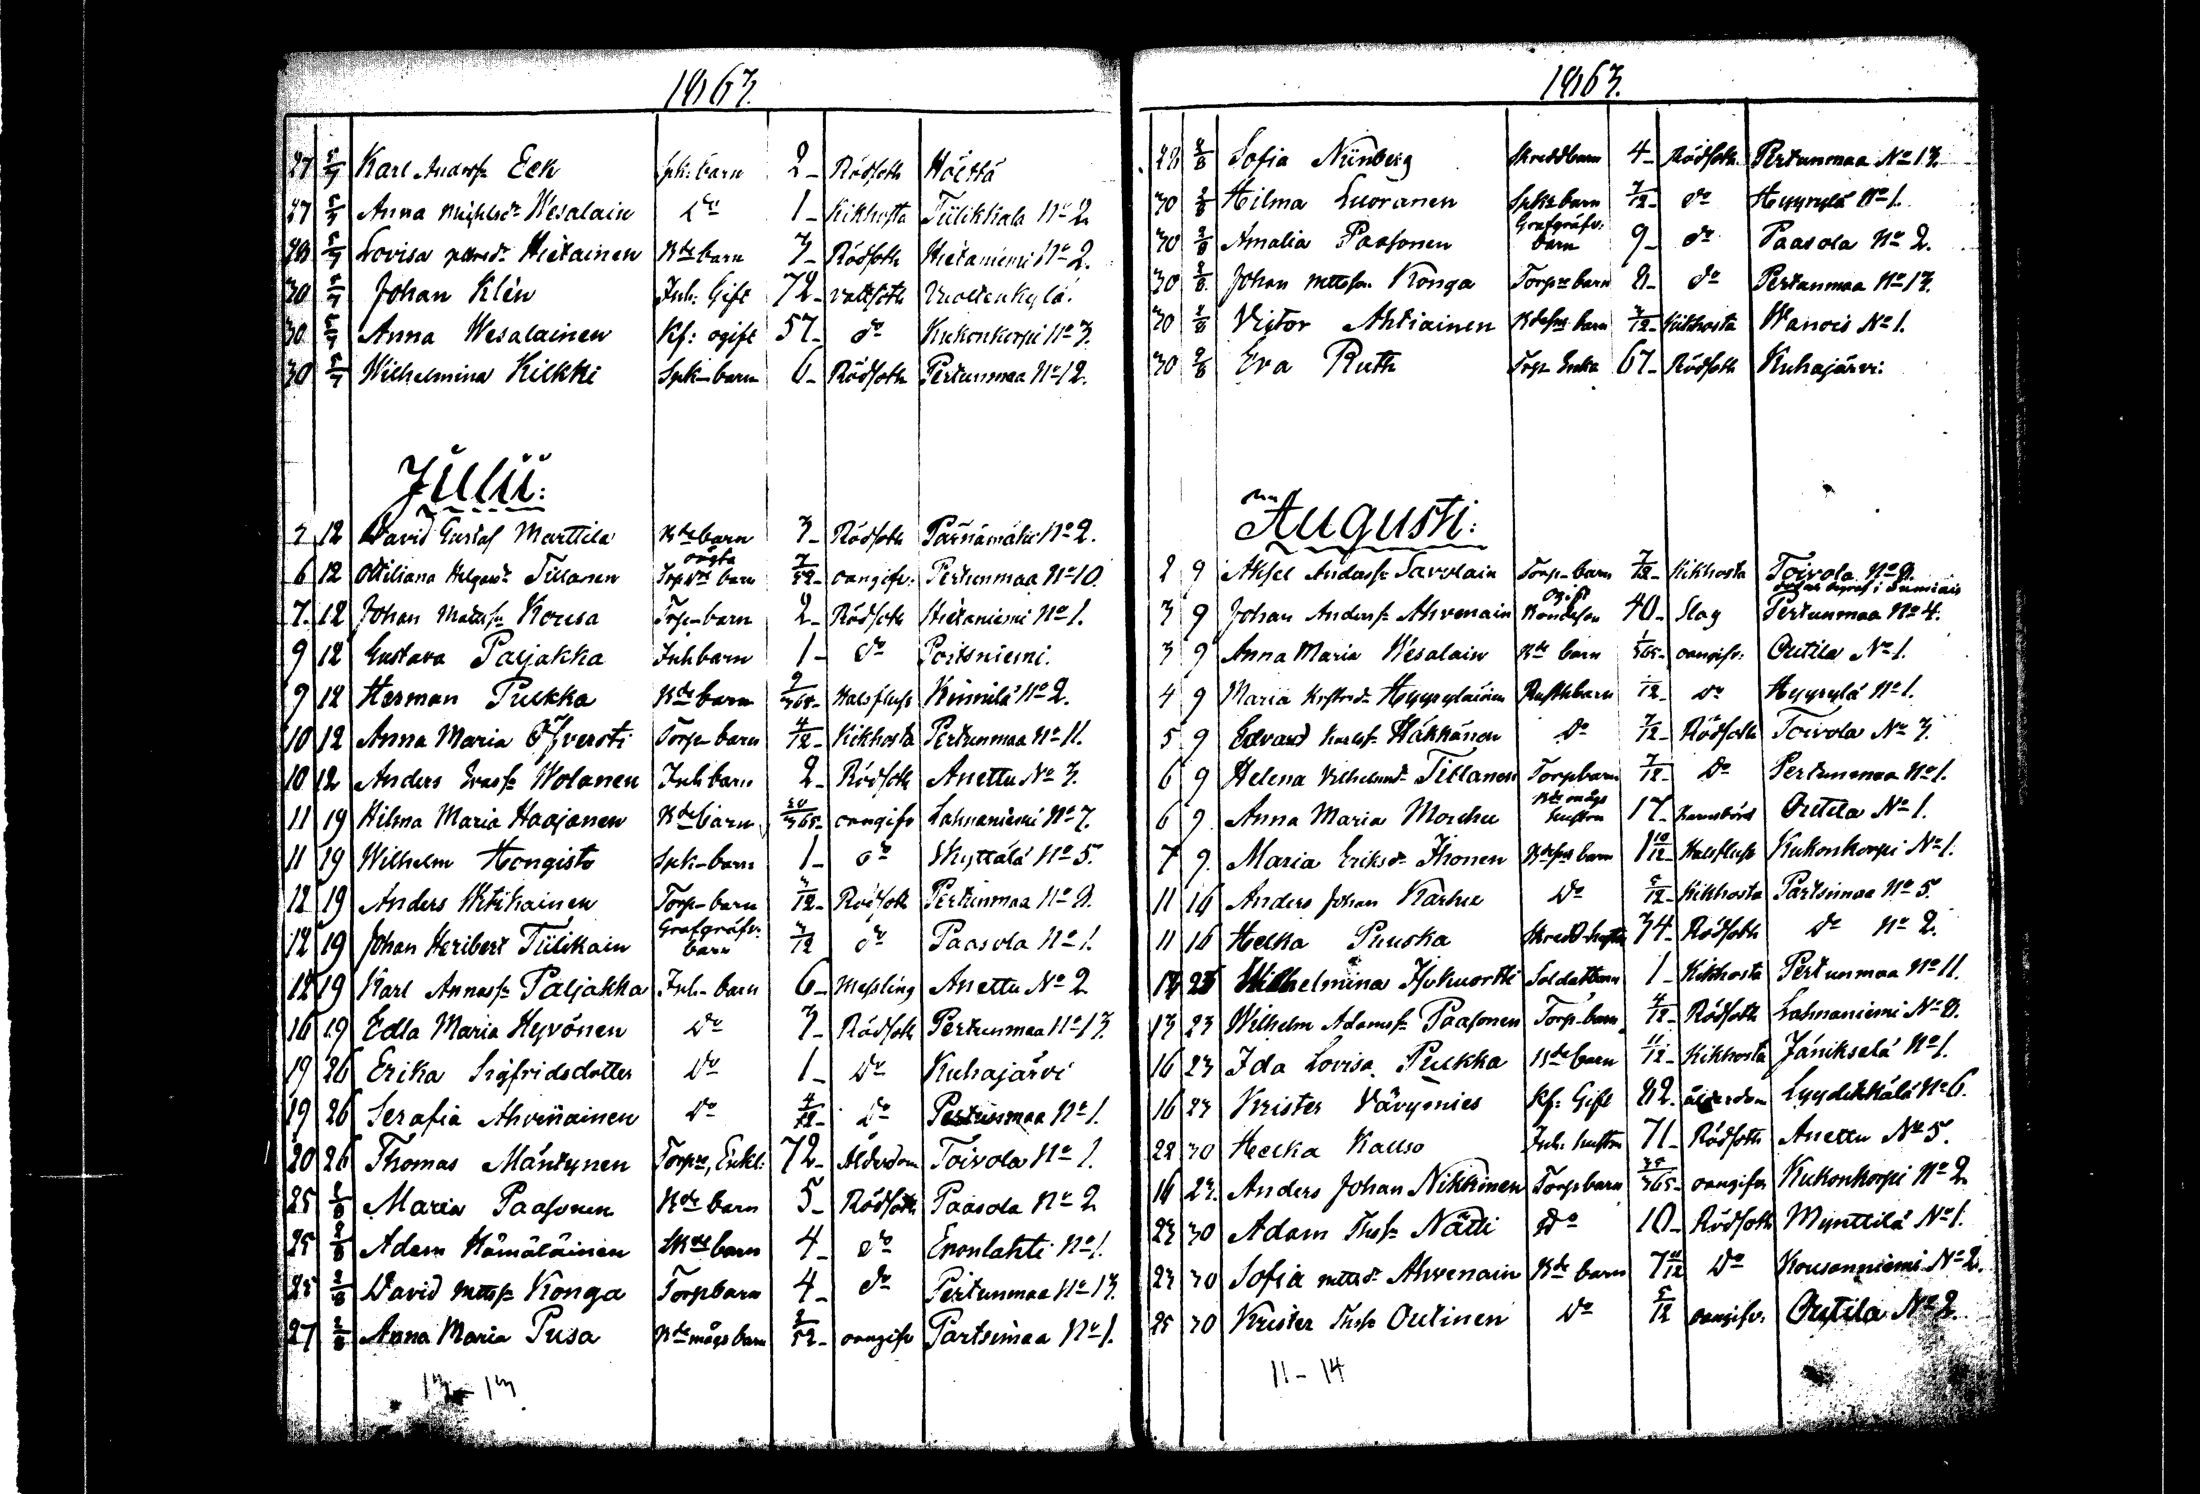 1863.
27 5/7 Karl Anders. Eek Spk: barn 2_ Rödsoth Hölttä
27 5/7 Anna Wesalain Do 1_ Kikhosta Tiilikkala No 2
28 5/7 Lovisa Hietainen Bde barn 3_ Rödsoth Hietaniemi No 2.
30 5/7 Johan Klén Inh: Gift 72_ vattsoth Vuoltenkylä.
30 5/7 Anna Wesalainen Kf: ogift 57_ do Kukonkorpi No 3.
30 5/7 Wilhelmina Kilkki Spk_barn 6_ Rödsoth Pertunmaa No 12.
Julii:
3 12 David Gustaf Marttila Bde barn 3_ Rödsoth Pärnämäki No 2.
oägta
6 12 Ottiliana Tillanen barn 7/52_ oangifv. Pertunmaa No 10.
7. 12 Johan Kousa Torp_barn 2_ Rödsoth Hietaniemi No 1.
9 12 Gustava Paljakka Inh barn 1_ do Portsniemi.
9 12 Herman Pulkka Bde barn 2/365_ Halsfluss Kinnilä No 2.
10 12 Anna Maria Öfversti Torp_barn 4/12_ Kikhosta Pertunmaa No 11.
10 12 Anders Wolanen Inh barn 2_ Rödsoth Anettu No 3.
11 19 Hilma Maria Haajanen Bde barn 365_ oangifv Lahnaniemi No 7.
11 19 Wilhelm Hongisto Spk_barn 1_ do Skyttälä No 5.
12 19 Anders Torp_barn 3/12_ Rödsoth Pertunmaa No 9.
12 19 Johan Heribert Tiilikain Grafgräfv. barn 3/12 do Paasola No 1.
12 19 Karl Paljakka Inh_barn 6_ Messling Anettu No 2
16 19 Edla Maria Hyvönen Do 3_ Rödsoth Pertunmaa No 13.
19 26 Erika Sigfridsdotter Do 1_ Do Kuhajärvi
19 26 Serafia Ahvenainen Do 4/12_ Do Pertunmaa No 1.
20 26 Thomas Mäntynen Torpre, Enkl: 72_ Ålderdom Toivola No 1.
25 2/8 Maria Paasonen Bde barn 5_ Rödsoth Paasola No 2
25 2/8 Adam Hämäläinen barn 4_ do Enonlahti No 1.
25 2/8 David Konga Torpbarn 4_ do Pertunmaa No 13.
27 2/8 Anna Maria Pusa Bde mågs barn 2/52_ oangifv Partsimaa No 1.
13_13
1863.
28 2/8 Sofia Nünberg Skreddbarn 4_ Rödsoth Pertunmaa No 13.
30 2/8 Hilma Luoranen Spk barn 7/12_ do Hyyrylä No 1.
30 2/8 Amalia Paasonen Grafgräfv. barn 9_ do Paasola No 2.
30 2/8 Johan Konga Torpre barn 8_ do Pertunmaa No 13.
30 2/8 Victor Ahtiainen barn 3/12_ Kikhosta Wanois No 1.
30 2/8 Eva Ruth Torp Enka 67_ Rödsoth Kuhajärvi.
Augusti:
2 9 Aksel Savolain Torp_barn 7/12_ Kikhosta Toivola No 9.
3 9 Johan Anderss. Ahvenain Ogift Bondeson 40_ Slag Pertunmaa No 4.
3 9 Anna Maria Wesalain Bde barn 1/365_ oangifv. Outila No 1.
4 9 Maria Hyyryläinen Rusthbarn 1/12_ Do Hyyrylä No 1.
5 9 Edvard Karlss. Häkkänen Do 7/12_ Rödsoth Toivola No 3.
6 9 Helena Tillanen Torpbarn 7/12_ Do Pertunmaa No 1.
6 9 Anna Maria Morchu Bde mågs hustru 17_ Barnsbörd Outila No 1.
7 9. Maria Eriksdr Ihonen barn 1 10/12_ Halsfluss Kukonkorpi No 1.
11 16 Anders Johan Karhu Do 5/12_ Kikhosta Partsimaa No 5.
11 16 Helka Puuska Skredd_hustru 34_ Rödsoth Do No 2.
12 23 Wilhelmina Soldatbarn 1_ Kikhosta Pertunmaa No 11.
13 23 Wilhelm Adamss. Paasonen Torp_barn 4/12_ Rödsoth Lahnaniemi No 8.
16 23 Ida Lovisa Pulkka Bde barn 11/12_ Kikhosta Jänikselä No 1.
16 23 Krister Vävymies Kf: Gift 82. ålderdom Lyydikkälä No 6.
28 30 Helka Kallso Inh. hustru 71_ Rödsoth Anettu No 5.
16 23. Anders Johan Nikkinen Torpbarn 365_ oangifv Kukonkorpi No 2
23 30 Adam Thss. Nätti Do 10_ Rödsoth Mynttilä No 1.
23 30 Sofia Ahvenain Bde barn 7 11/12 Do Kousanniemi No 2.
25 30 Krister Thss. Outinen Do 5/12 oangifv. Outila No 2.
11_14